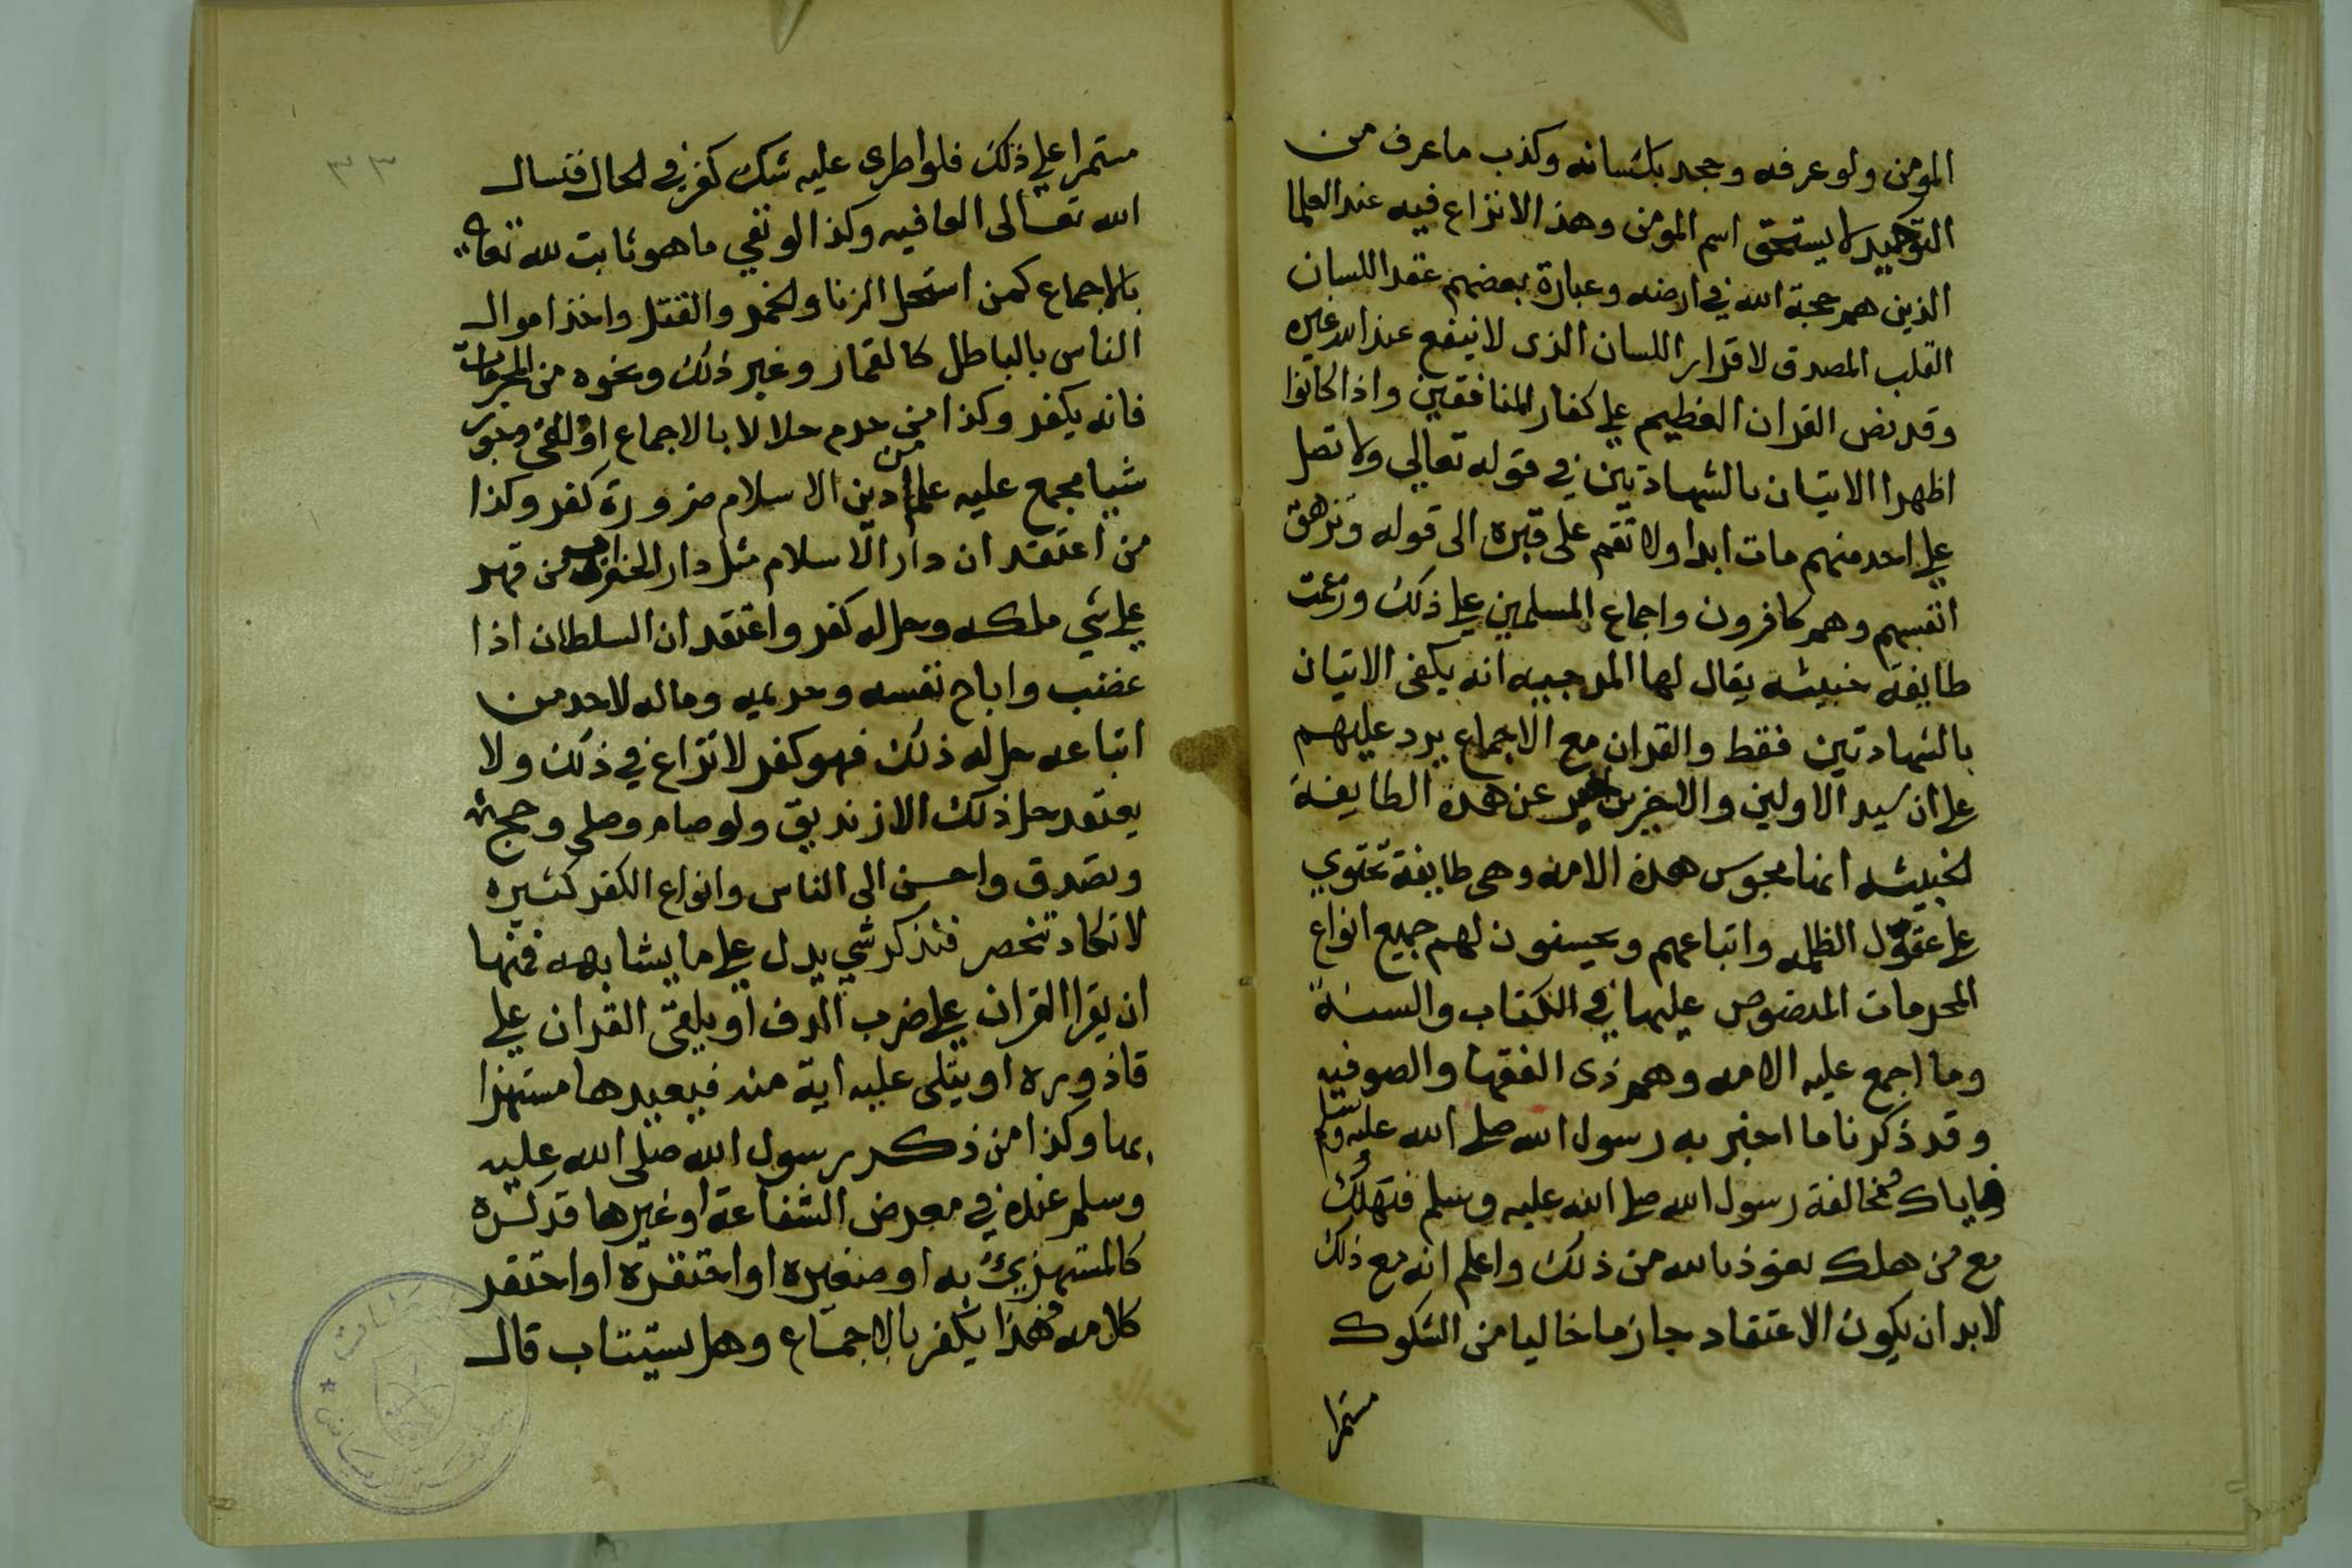 المومن ولو عرفه وجحد بلسانه وكذب ما عرف من
التوحيد لا يستحق اسم المومن وهذا لا نزاع فيه عند العلما
الذين هم حجة الله في ارضه وعبارة بعضهم عقد اللسان
القلب المصدق لاقرار اللسان الذى لا ينفع عند الله غيره
وقد نص القران العظيم على كفار المنافقين واذا كانوا
اظهرا الاتيان بالشهادتين في قوله تعالي ولا تصل
على احد منهم مات ابدا ولا تقم على قبره الى قوله وتزهق
انفسهم وهم كافرون واجماع المسلمين على ذلك وزعمت
طايفة خبيثه يقال لها المرجييه انه يكفى الاتيان
بالشهادتين فقط والقران مع الاجماع يرد عليهم
على ان سيد الاولين والاخرين اخبر عن هذه الطايفة
الخبيثه انها مجوس هذه الامه وهى طايفة تحتوي
على عقول الظلمه واتباعهم ويحسنون لهم جميع انواع
المحرمات المنصوص عليها في الكتاب والسنة
وما اجمع عليه الامه وهم زى الفقها والصوفيه
وقد ذكرنا ما اخبر به رسول الله صلى الله عليه وسلم
فاياك ومخالفة رسول الله صلى الله عليه وسلم فتهلك
مع من هلك نعوذ بالله من ذلك واعلم انه مع ذلك
لابد ان يكون الاعتقاد جازما خاليا من الشكوك
مستمرا
٣٣
مستمرا على ذلك فلو اطرى عليه شك كفر في الحال فنسال
الله تعالى العافيه وكذا لو نفي ما هو ثابت لله تعالى
بالاجماع كمن استحل الزنا والخمر والقتل واخذ اموال
الناس بالباطل كالقمار وغير ذلك ونحوه من المحرمات
فانه يكفر وكذا من حرم حلالا بالاجماع او نفى وجوب
شيا مجمع عليه علم من دين الاسلام ضرورة كفر وكذا
من اعتقد ان دار الاسلام مثل دار الحرب من قهر
على شي ملكه وحل له كفر واعتقد ان السلطان اذا
غضب واباح نفسه وحريمه وماله لاحد من
اتباعه حل له ذلك فهو كفر لا نزاع في ذلك ولا
يعتقد حل ذلك الا زنديق ولو صام وصلى وحج
وتصدق واحسن الى الناس وانواع الكفر كثيره
لا تكاد تنحصر فنذكر شي يدل على ما يشابهه فمنها
ان يقرا القران على ضرب الدف او يلقى القران على
قاذوره او يتلى عليه اية منه فيعيدها مستهزا
بها وكذا من ذكر رسول الله صلى الله عليه
وسلم عنده في معرض الشفاعة او غيرها قد كره
كالمستهزئ به او صغيره او احتقره او احتقر
كلامه فهذا يكفر بالاجماع وهل يستتاب قال